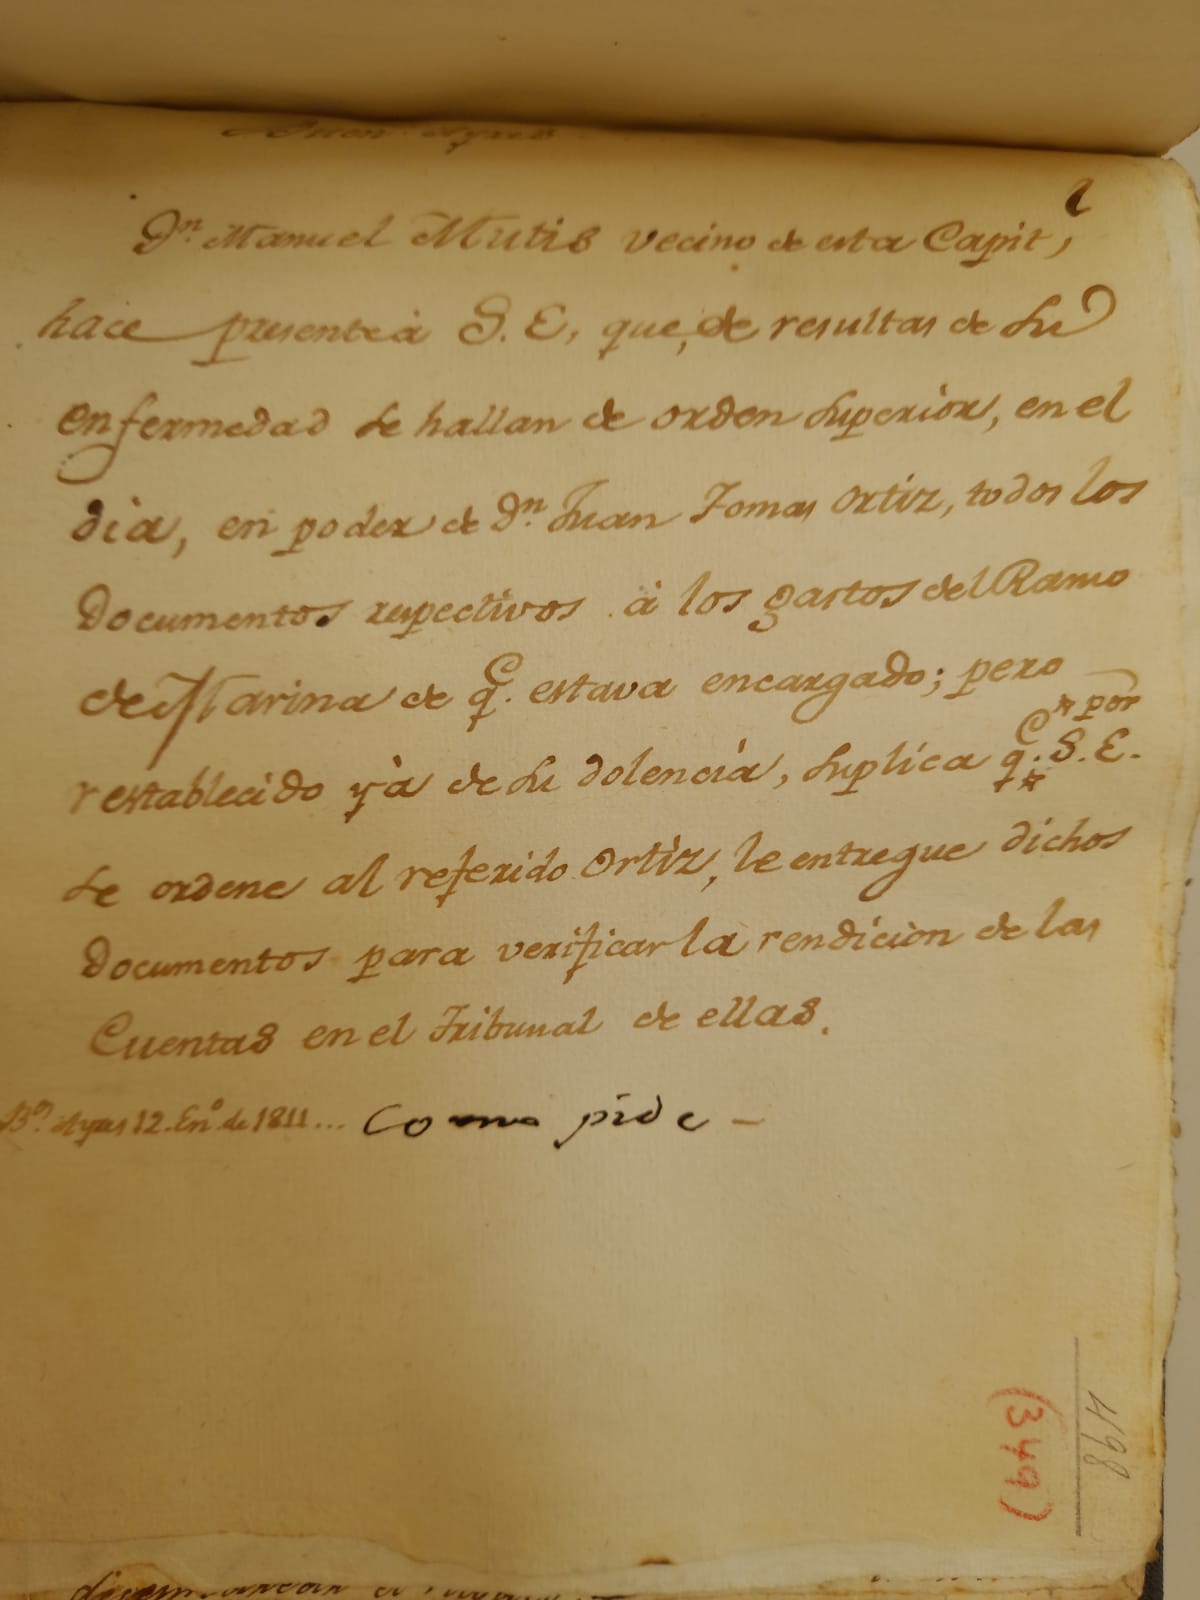 Buen Ayres
Dn. Manuel Mutis vecino de esta Capitl,
hace presente à S. E., que, de resultas de su
enfermedad se hallan de orden superior, en el
dia, en poder de Dn. Juan Tomas Ortiz, todos los
Documentos respectivos à los gastos del Ramo
de Marina de qe. estava encargado; pero
* por
restablecido yà de su dolencia, suplica qe. * S. E.
se ordene al referido Ortiz, le entregue dichos
documentos para verificar la rendicion de las
Cuentas en el Tribunal de ellas.
Bs. Ayres 12. Eno. de 1811... Como pide -
(349)
498